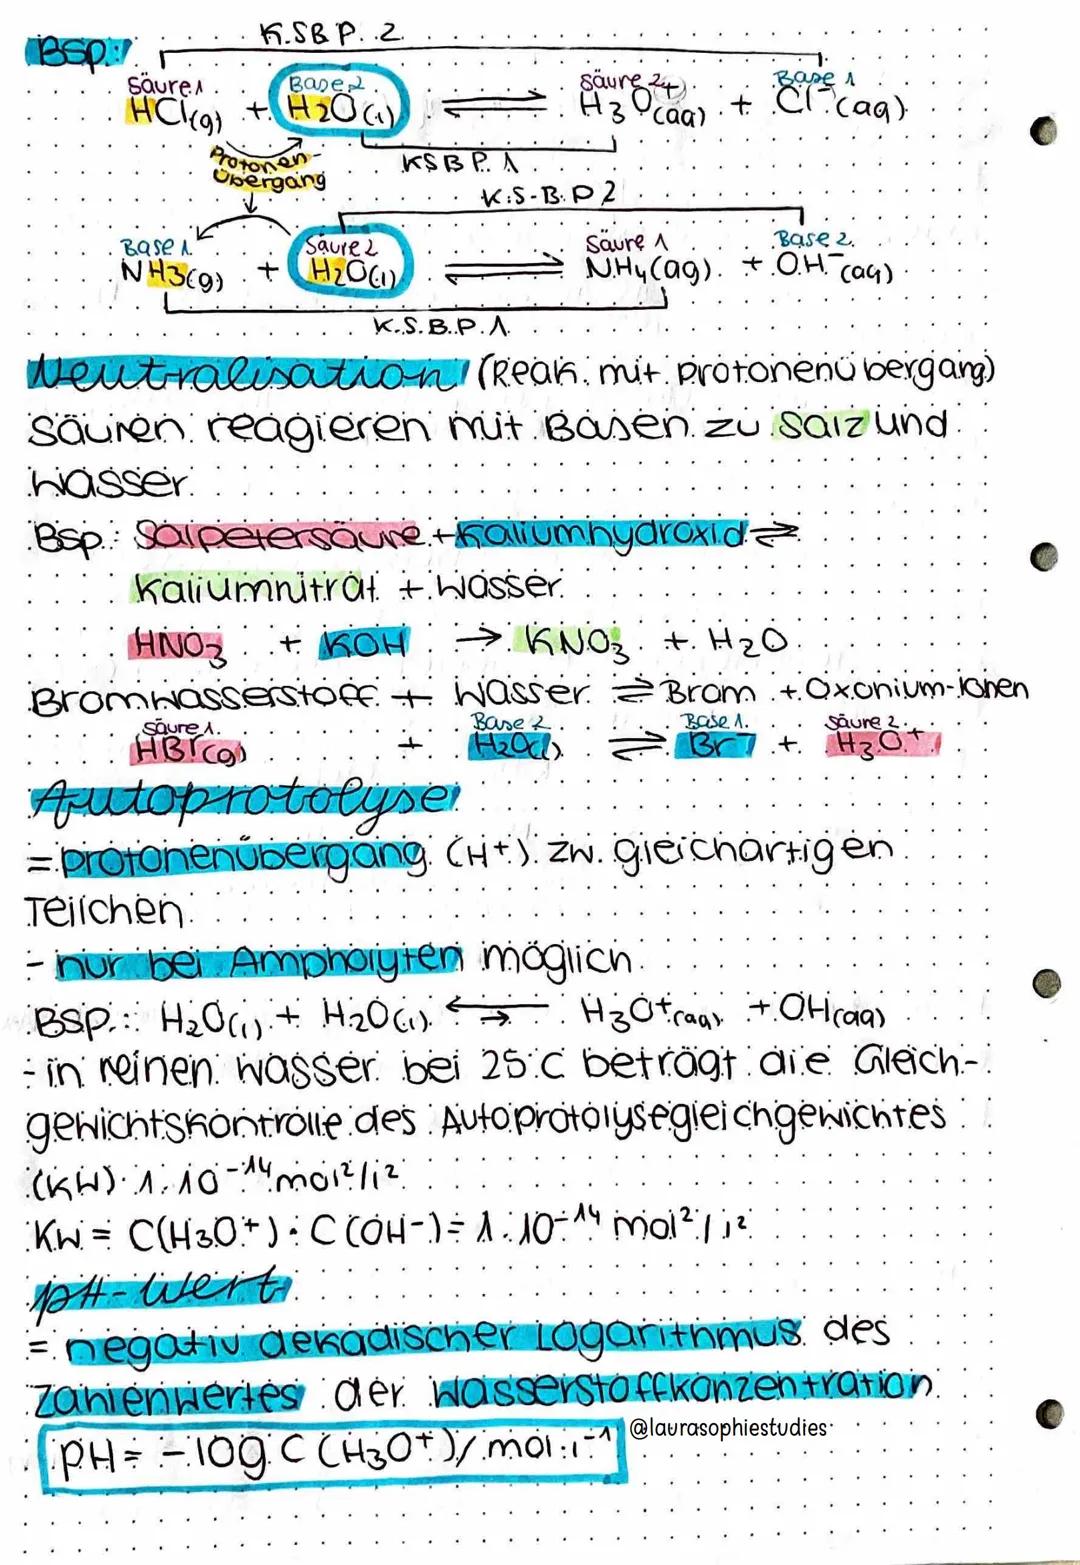 Bsp:
K.SB P. 2
Säure 1 Base 2 Säure 2 Base 1
HCl(g) + H2O(l) ⇌ H3O+(aq) + Cl-(aq)
Protonen-
übergang
KSBP. 1
K.S-B.P 2
Base 1 Säure 2 Säure 1 Base 2.
NH3(g) + H2O(l) ⇌ NH4(aq) + OH-(aq)
K.S.B.P.1
Neutralisation (Reak. mit protonenübergang)
Säuren reagieren mit Basen zu Salz und
wasser.
Bsp.: Salpetersäure + Kaliumhydroxid ⇌
Kaliumnitrat + Wasser.
HNO3 + KOH → KNO3 + H2O
Bromwasserstoff + Wasser ⇌ Brom + Oxonium-Ionen
Säure 1 Base 2 Base 1. Säure 2.
HBr(g) + H2O(l) ⇌ Br- + H3O+
Autoprotolyse
= protonenübergang (H+) zw. gleichartigen
Teilchen
- nur bei Ampholyten möglich
BSP.: H2O(l) + H2O(l) ⇌ H3O+(aq) + OH(aq)
- in reinen wasser bei 25°C beträgt die Gleich-
gewichtskontrolle des Autoprotolysegleichgewichtes
(KW) 1·10-14 mol2/l2
KW = C(H3O+) · C(OH-) = 1·10-14 mol2/l2
pH-Wert
= negativ dekadischer Logarithmus des
Zahlenwertes der Wasserstoffkonzentration
pH = -log C (H3O+)/mol·l-1
@laurasophiestudies